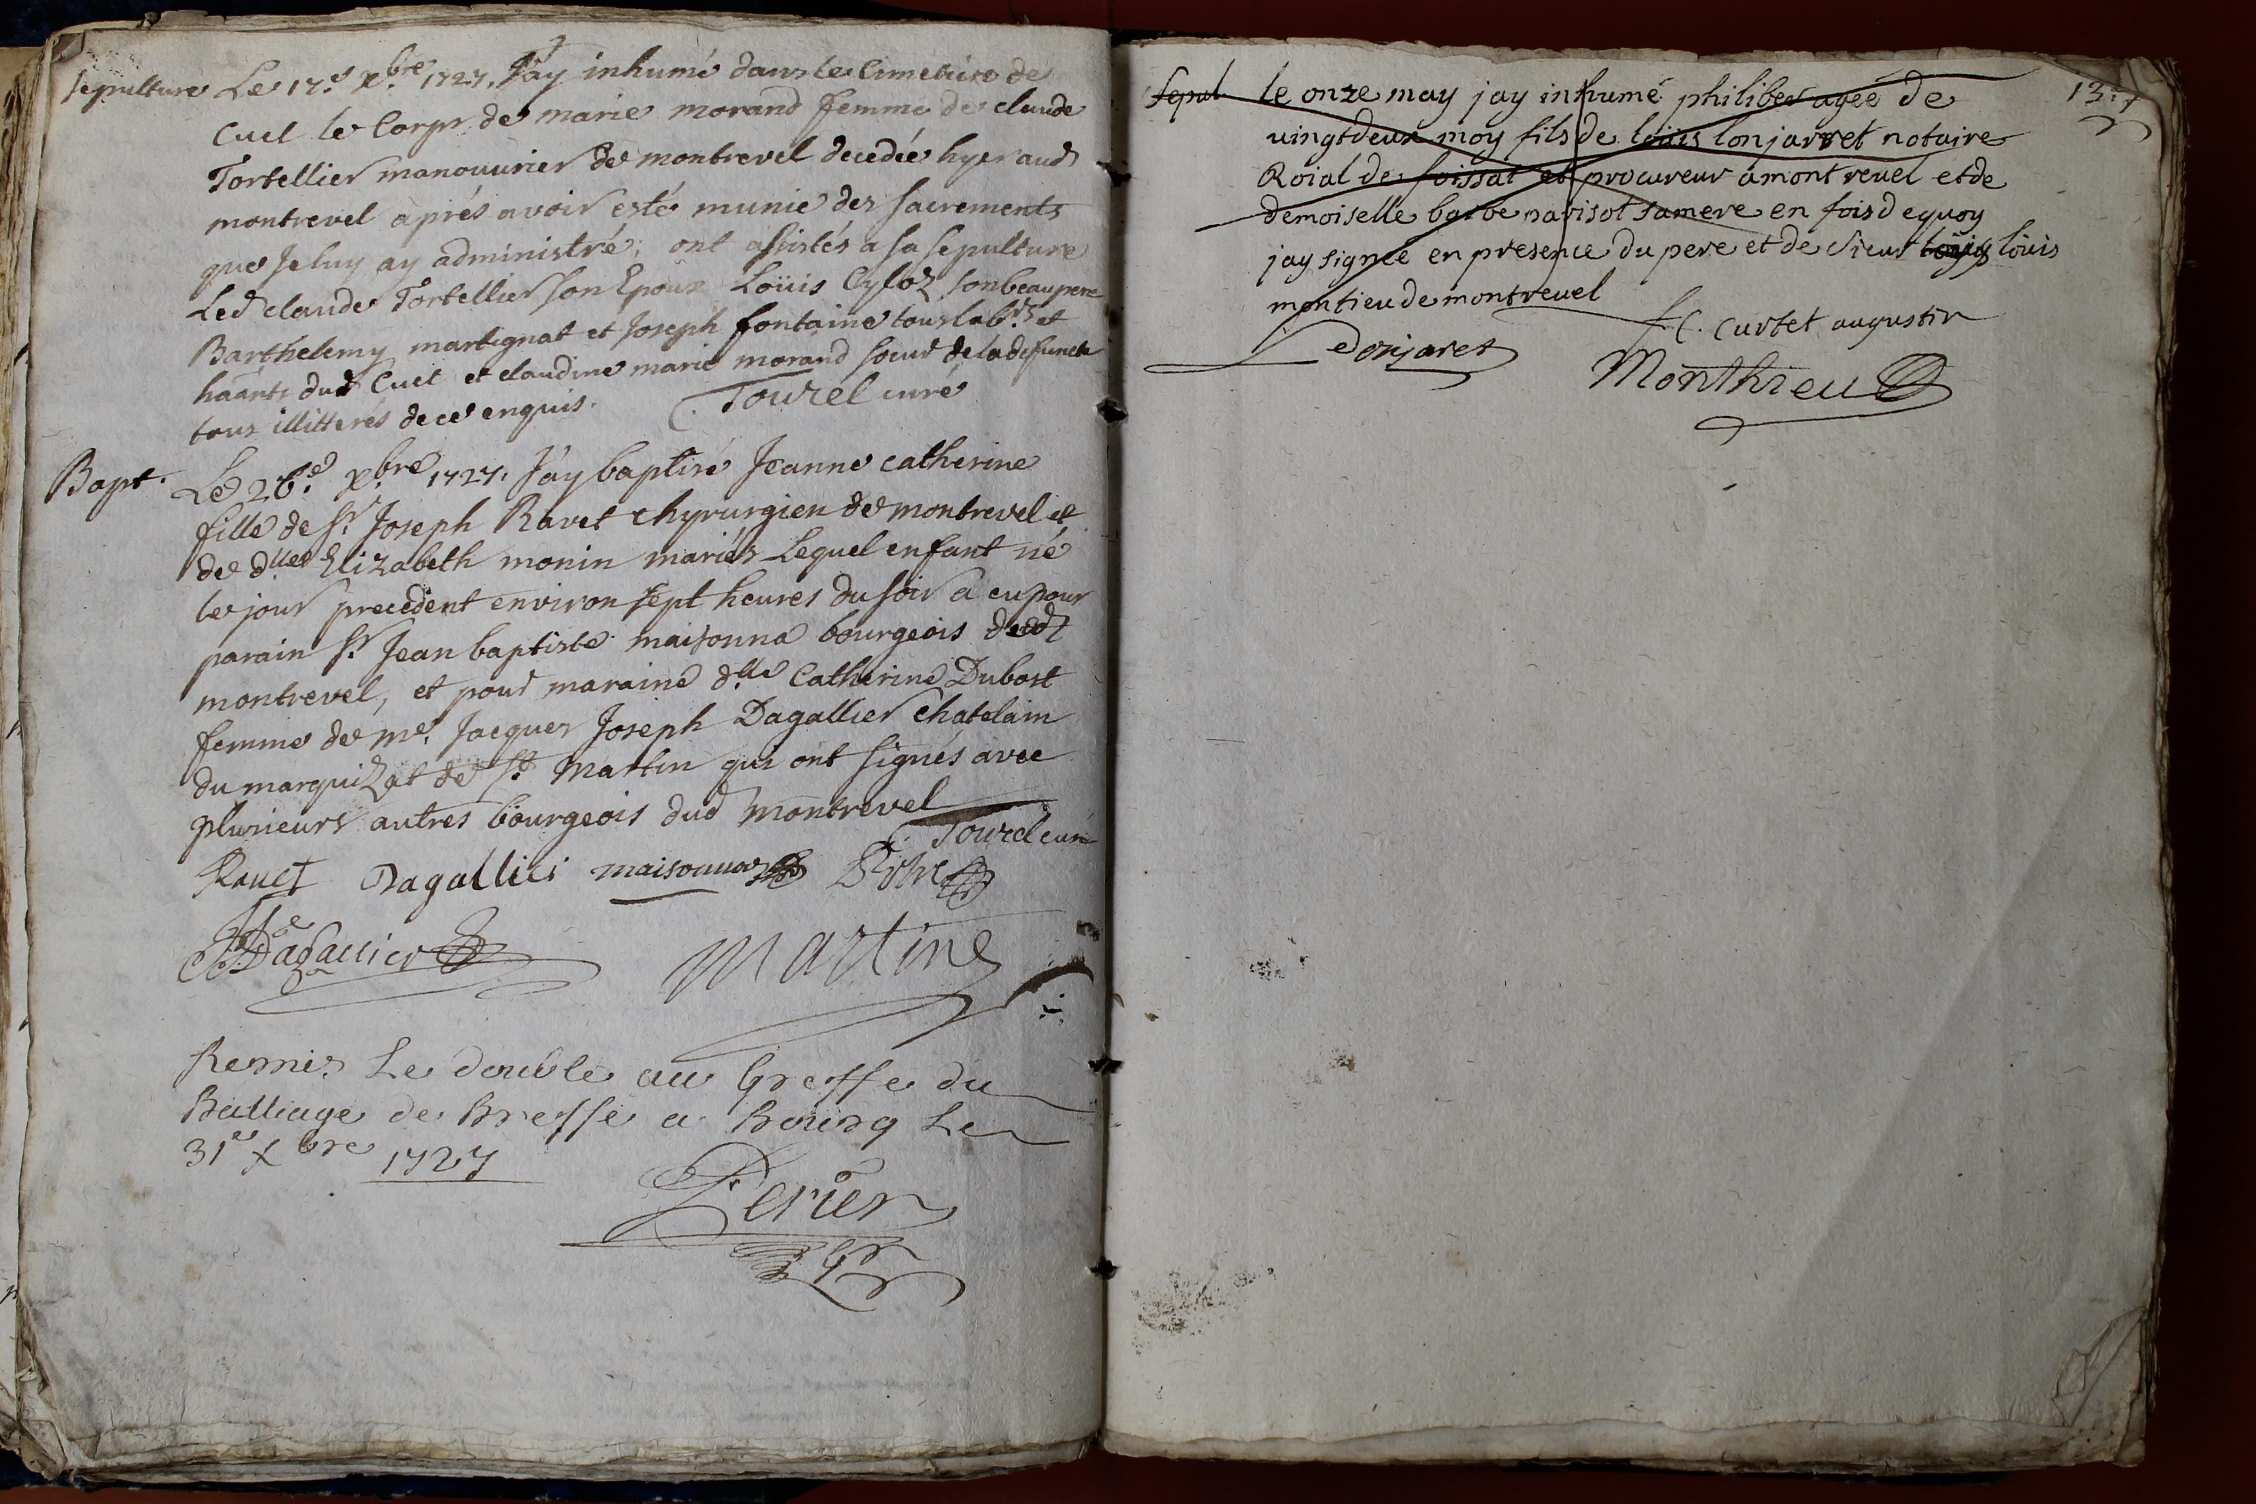 sepulture Le 17.e xbre 1727. J'ay inhumé dans le Cimetiere de
Cuet le Corps de marie morand femme de claude
Tortellier manouvrier de montrevel decedée hyer aud
montrevel aprés avoir esté munie des sacrements
que Je luy ay administré; ont assistés a sa sepulture
Led claude Tortellier son Epoux Loüis son beaupere
Barthelemy martignat et Joseph fontaine tous lab.rs et
haânts dud Cuet et claudine marie morand soeur de la defuncte
tous illitterés de ce enquis. Tourel curé
Bapt. Le 26.e xbre 1727. J'ay baptisé Jeanne catherine
fille de Sr. Joseph Ravet chyrurgien de montrevel et
de dlle Elizabeth monin mariés Lequel enfant né
le jour precedent environ sept heures du soir a eu pour
parain Sr. Jean baptiste maisonna bourgeois dud
montrevel, et pour maraine dlle Catherine Dubost
femme de me. Jacques Joseph Dagallier chatelain
du marquizat de St. Martin qui ont signés avec
plusieurs autres bourgeois dud montrevel
Tourel curé
Ravet Dagallier maisonna
Dagallier Martine
Remis Le double au Greffe du
Balliage de Bresse a Bourg Le
31e xbre 1727
Perier
13.
sepul le onze may jay inhumé philiber agée de
vingt deux moy fils de loüis lonjarret notaire
Roial de foissiat et procureur à montrevel et de
demoiselle barbe navisot sa mere en fois de quoy
jay signée en presence du pere et de sieur loüis loüis
montieu de montrevel
f C. Curtet augustin
Lonjaret
Monthieu